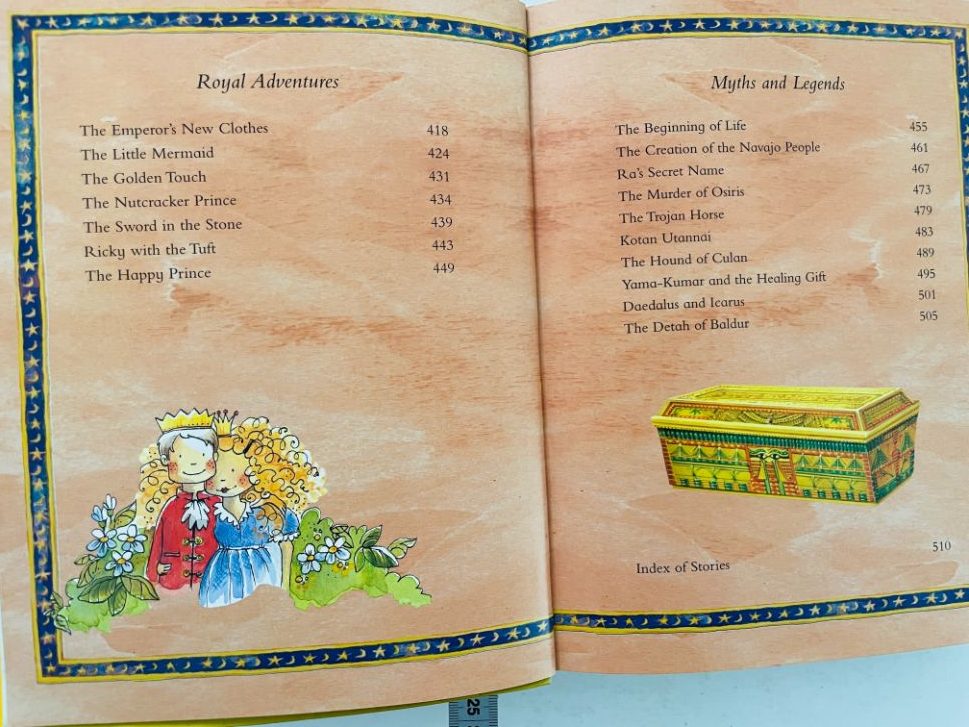 Royal Adventures
The Emperor's New Clothes 418
The Little Mermaid 424
The Golden Touch 431
The Nutcracker Prince 434
The Sword in the Stone 439
Ricky with the Tuft 443
The Happy Prince 449
Myths and Legends
The Beginning of Life 455
The Creation of the Navajo People 461
Ra's Secret Name 467
The Murder of Osiris 473
The Trojan Horse 479
Kotan Utannai 483
The Hound of Culan 489
Yama-Kumar and the Healing Gift 495
Daedalus and Icarus 501
The Detah of Baldur 505
Index of Stories 510
25